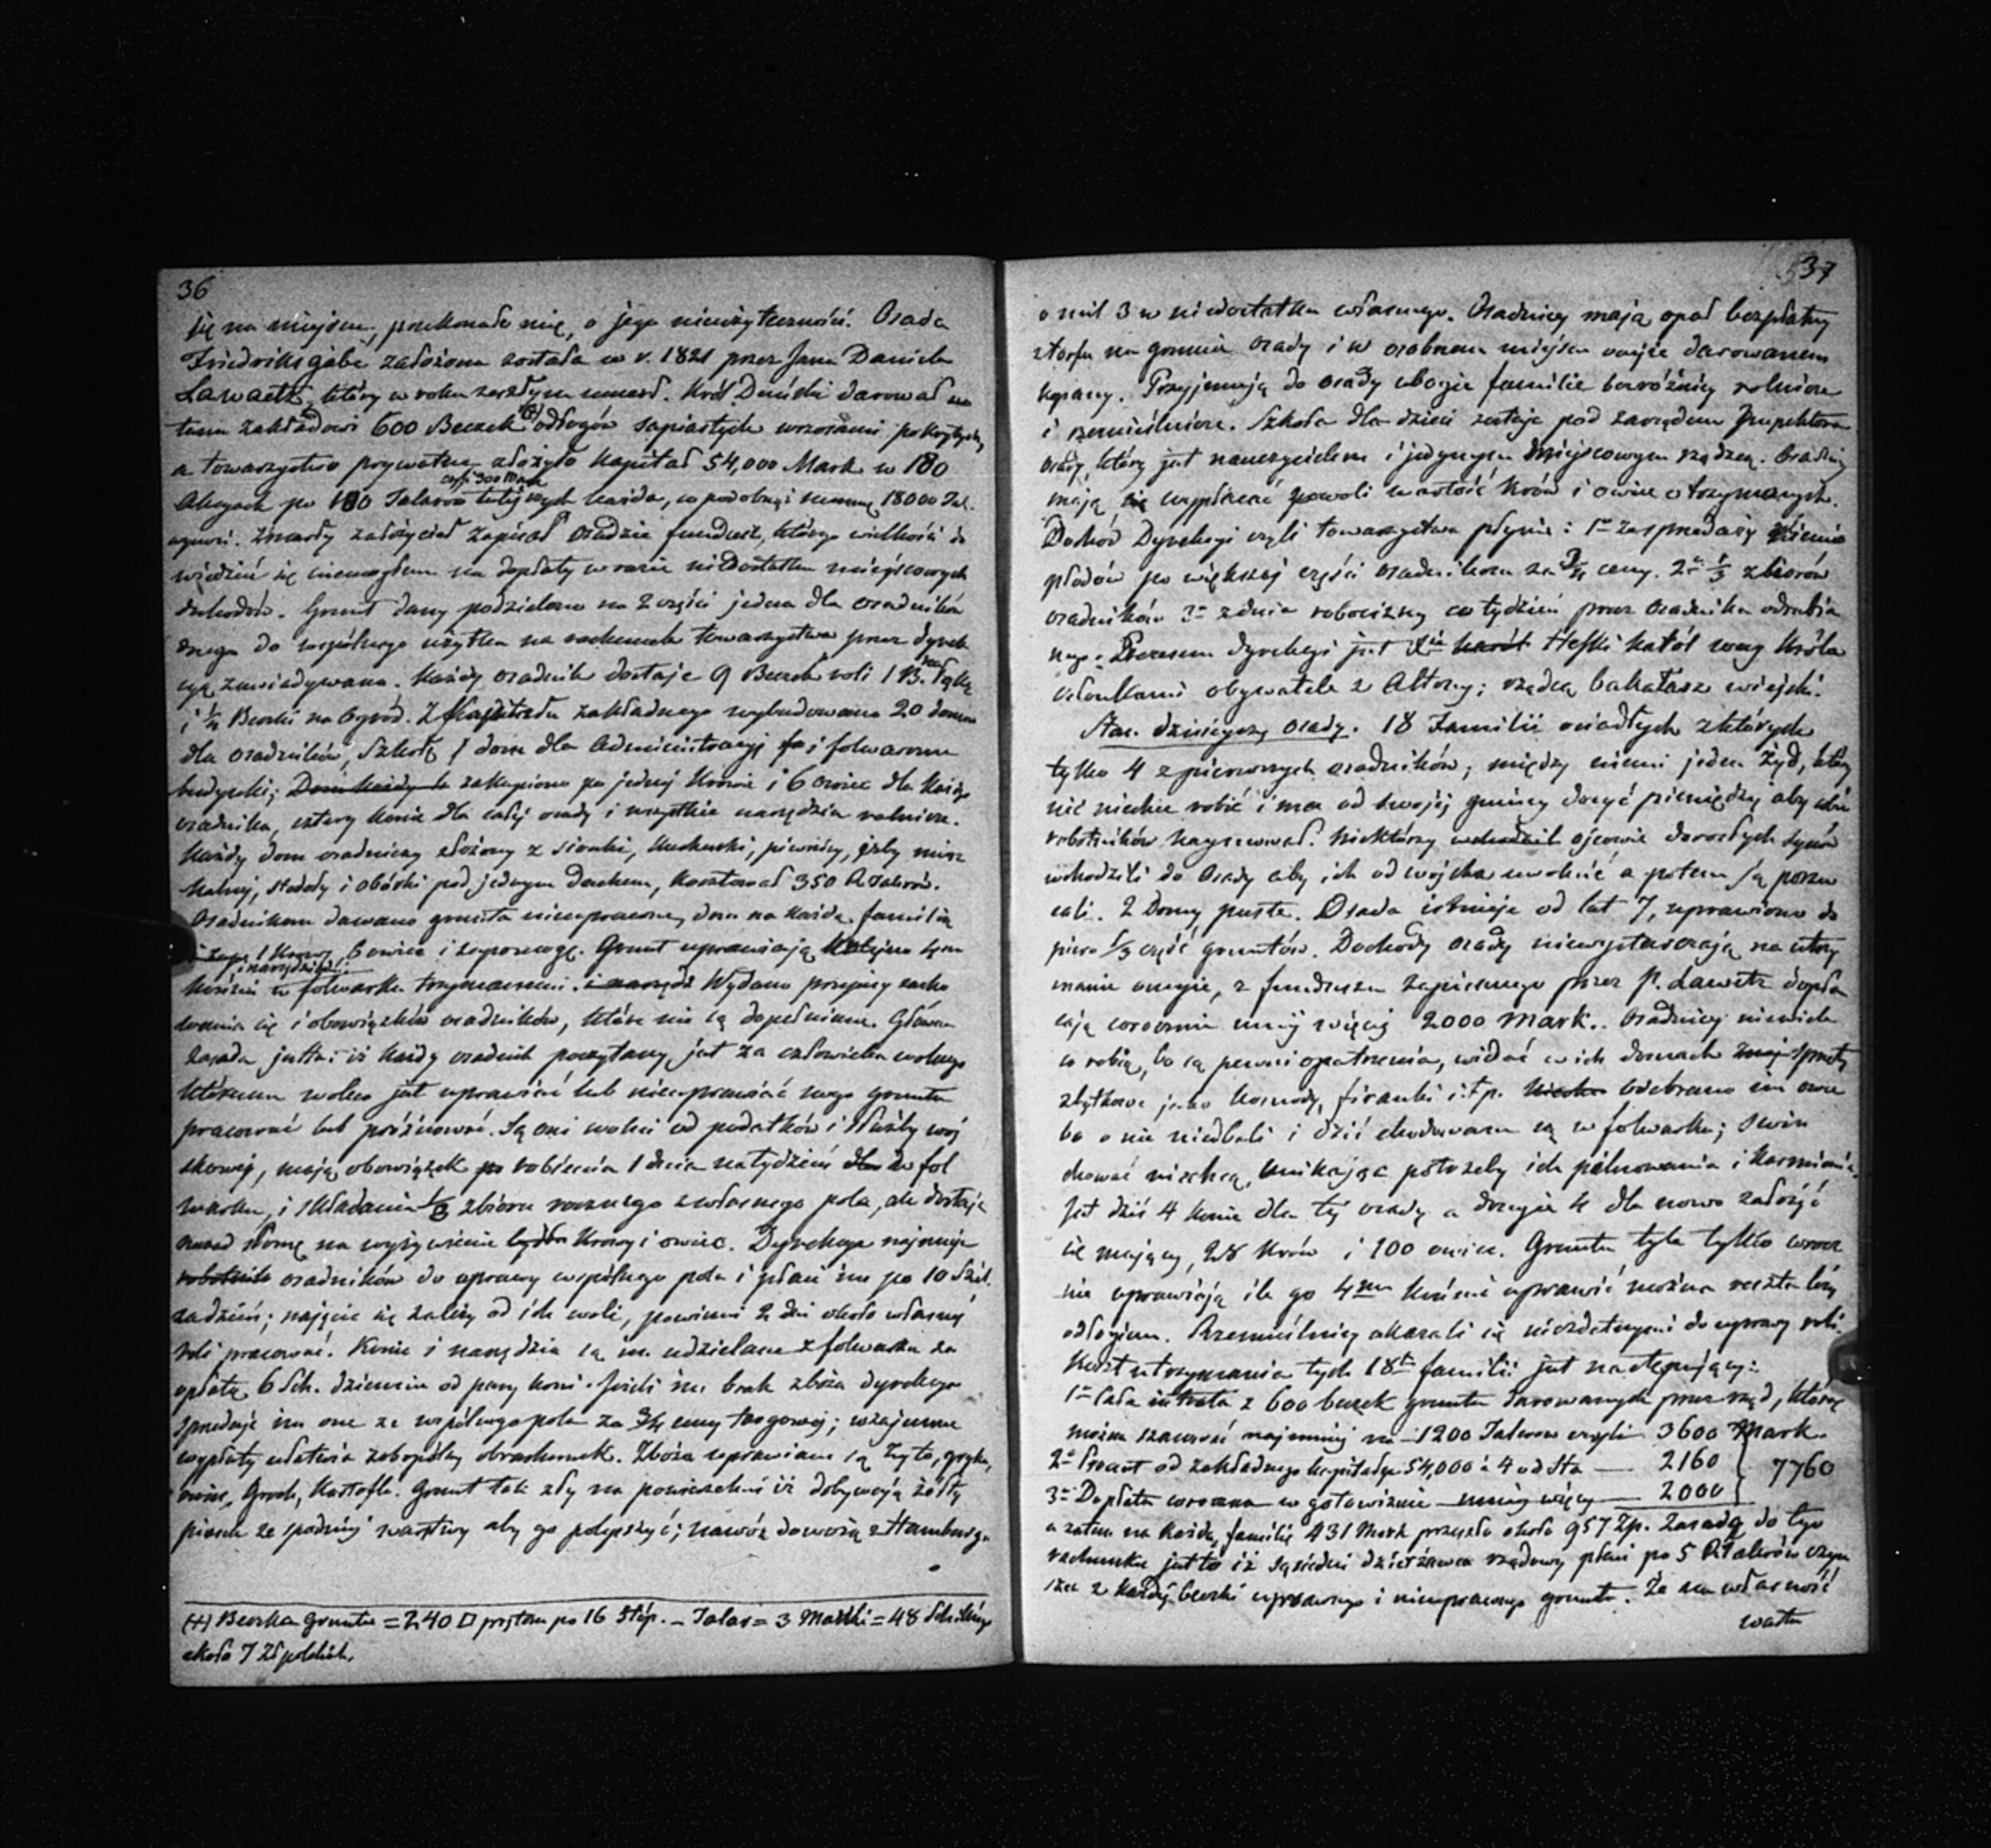 36
się na miejscu, przekonało mię, o jego nieużyteczności. Osada
Friedriksgabe założona została w r. 1821 przez Jana Daniela
Lawaetz, który w roku zeszłym umarł. Król Duński darował na
temu zakładowi 600 Beczek (+) odłogów sapiastych wrzosami pokrytych,
a towarzystwo prywatne złożyło kapitał 54,000 Mark w 180
czyli 300 Mark
Akcyach po 100 Talarów tutejszych każda, co podobnąż summę 18000 Tal.
wynosi. Zmarły założyciel zapisał osadzie fundusz, którego wielkości do
wiedzieć się niemogłem na dopłaty w razie niedostatku miejscowych
dochodów. Grunt dany podzielono na 2 części jedna dla osadników
druga do wspólnego użytku na rachunek towarzystwa przez dyrek
cyą zawiadywana. Każdy osadnik dostaje 9 Beczek roli 1 B. na łąkę
i 1/4 Beczki na Ogród. Z Kapitału zakładnego wybudowano 20 domów
dla osadników, Szkołę 1 dom dla Administracyi fo i folwarczne
budynki; Dom każdy k zakupiono po jednej Krowie i 6 owiec dla każdego
osadnika, cztery konie dla całej osady i wszystkie narzędzia rolnicze.
Każdy dom osadniczy złożony z sionki, kuchenki, piwnicy, izby miesz
kalnej, stodoły i obórki pod jednym dachem, kosztował 350 R. Talarów.
Osadnikom dawano grunta nieuprawne, dom na każdą familią
i zapo 1 Krowę, 6 owiec i zapomogę. Grunt uprawiają kolejno tęmi
i narzędziami
końmi w folwarku trzymanemi. i narzędz Wydano przepisy zacho
wania się i obowiązków osadników, które nie są dopełniane. Główna
zasada jest ta: iż każdy osadnik poczytany jest za człowieka wolnego
któremu wolno jest uprawiać lub nieuprawiać swego gruntu
pracować lub próżnować. Są oni wolni od podatków i służby woj
skowej, mają obowiązek po robienia 1 dnia na tydzień dla w fol
warku, i składania 1/3 zbioru rocznego z własnego pola, ale dostają
nazad słomę na wyżywienie bydła Krowy i owiec. Dyrekcya najmuje
robotnik osadników do uprawy wspólnego pola i płaci im po 10 Szel.
za dzień; najęcie się zależy od ich woli, powinni 2 dni około własnej
roli pracować. Konie i narzędzia są im udzielane z folwarku za
opłatą 6 Sch. dziennie od pary koni. Jeżeli im brak zboża dyrekcya
sprzedaje im one ze wspólnego pola za 3/4 ceny targowej; wzajemne
wypłaty ułatwia zobopólny obrachunek. Zboża uprawiane są Żyto, gryka,
owies, Groch, Kartofle. Grunt tak zły na powierzchni iż dobywają żółty
piasek ze spodniej warstwy aby go polepszyć; nawóz dowożą z Hamburga
(+) Beczka gruntu = 240 □ prętom po 16 stóp. – Talar = 3 Marki = 48 Schilingów
około 7 Zł polskich.
37
o mil 3 w niedostatku własnego. Osadnicy mają opał bezpłatny
z torfu na gruncie osady i w osobnem miejscu onejże darowanem
kopany. Przyjmują do osady ubogie familie bez różnicy rolnicze
i rzemieślnicze. Szkoła dla dzieci zostaje pod zarządem Inspektora
osady, który jest nauczycielem i jedynym miejscowym rządzcą. Osadnicy
mają się wypłacać powoli wartość krów i owiec otrzymanych.
Dochód Dyrekcyi czyli towarzystwa płynie: 1o ze sprzedaży ziemio
płodów po większej części osadnikom za 3/4 ceny. 2o z 1/3 zbiorów
osadników 3o z dnia robocizny co tydzień przez osadnika odrabia
nego. Prezesem dyrekcyi jest Xże karól Heski katól szwag Króla
członkami obywatele z Altony; rządcą bakałarz wiejski.
Stan dzisiejszy osady. 18 Familii osiadłych z których
tylko 4 z pierwszych osadników; między niemi jeden Żyd, który
nic niechce robić i ma od swojej gminy dosyć pieniędzy aby obie
robotników najmował. Niektórzy wchodzili ojcowie dorosłych synów
wchodzili do Osady aby ich od wojska uwolnić a potem są porzu
cali. 2 Domy puste. Osada istnieje od lat 7, uprawiono do
piero 1/3 część gruntów. Dochody osady niewystarczają na utrzy
manie onejże, z funduszu zapisanego przez P. Lawetz dopła
cają corocznie mniej więcej 2000 Mark. Osadnicy niewiele
co robią, bo są pewni opatrzenia, widać w ich domach znaj sprzęty
zbytkowe jako komody, firanki i t. p. Niecho odebrano im owce
bo o nie niedbali i dziś chodowane są w folwarku; świn
chować niechcą, unikając potrzeby ich pilnowania i karmienia.
Jest dziś 4 konie dla tej osady a drugie 4 dla nowo założyć
się mającej, 28 krów i 100 owiec. Gruntu tyle tylko corocz
nie uprawiają ile go 4ma końmi uprawić można reszta leży
odłogiem. Rzemieślnicy okazali się niezdatnymi do uprawy roli.
Koszt utrzymania tych 18tu familii jest następujący:
1o Cała intrata z 600 beczek gruntu darowanych przez rząd, którą
można szacować najmniej na – 1200 Talarów czyli – 3600 Mark.
2o Procent od zakładnego kapitału 54,000 à 4 od sta — 2160 } 7760
3o Dopłata coroczna w gotowiźnie – mniej więcej — 2000
a zatem na każdą familię 431 Mark przeszło około 957 Zp. Zasadą do tego
rachunku jest to iż sąsiedni dzierżawca rządowy płaci po 5 R Talarów czyn
szu z każdej beczki uprawnego i nieuprawnego gruntu. Że na własność
warta